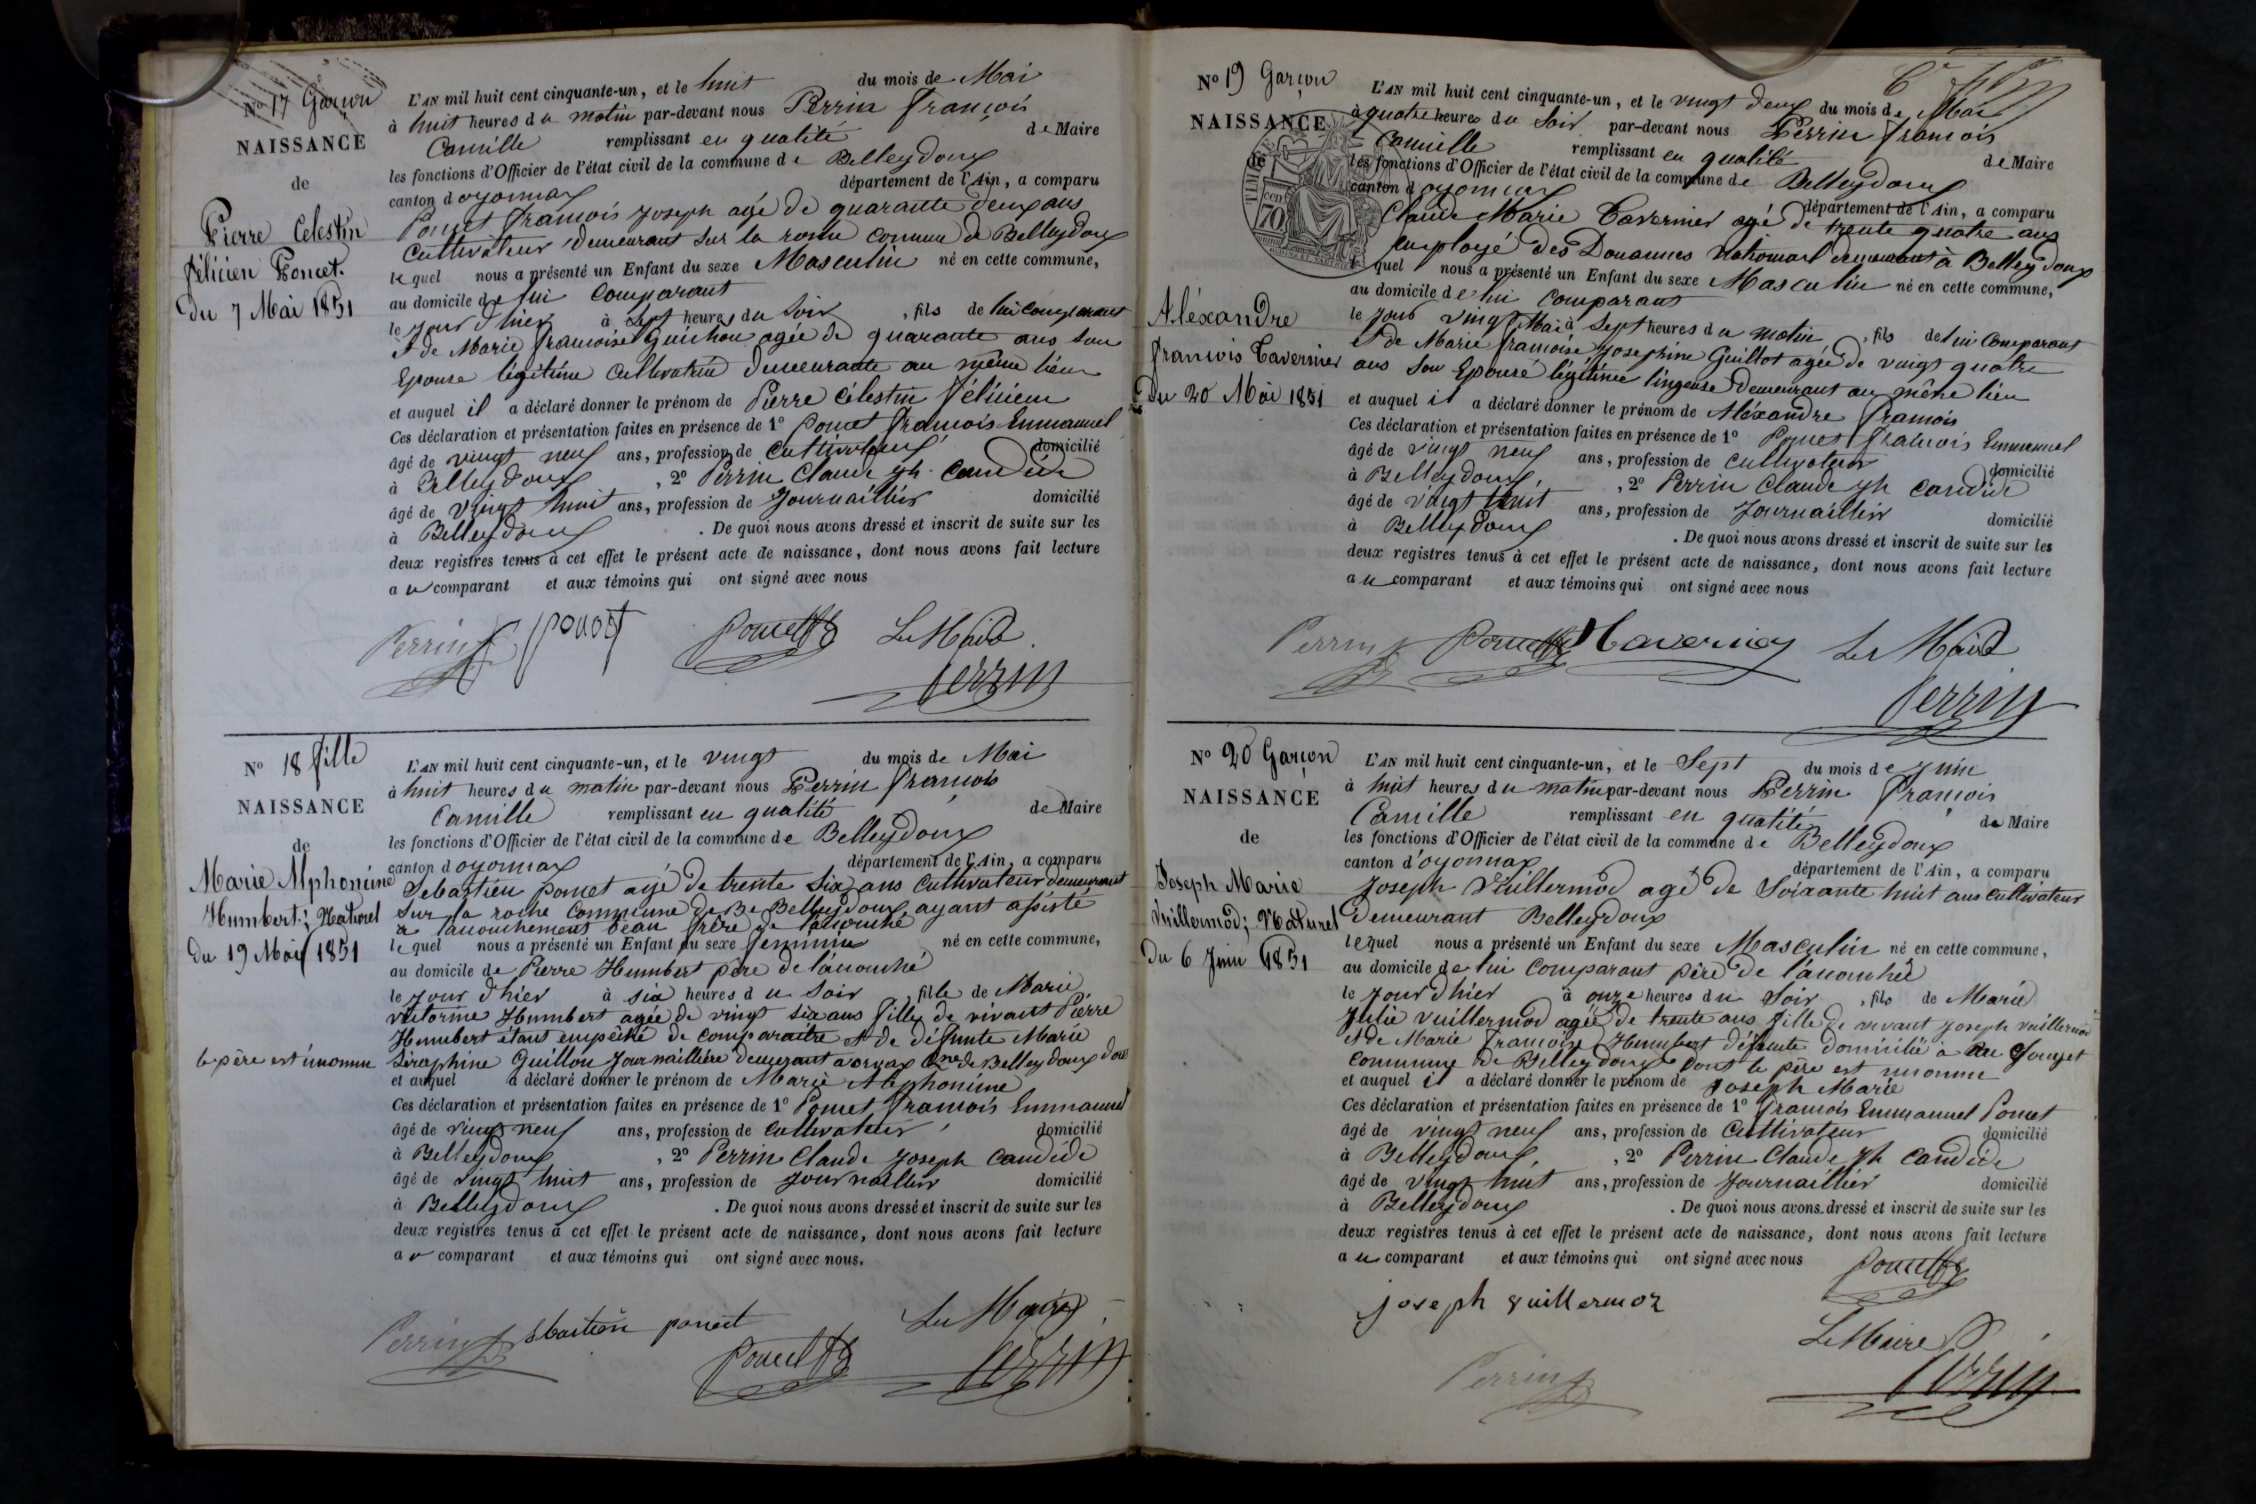 No 17 Garçon
NAISSANCE
de
Pierre Celestin
félicien Poncet.
Du 7 Mai 1851
L'AN mil huit cent cinquante-un, et le huit du mois de Mai
à huit heures du matin par-devant nous Perrin françois
Camille remplissant en qualité de Maire
les fonctions d'Officier de l'état civil de la commune de Belleydoux
canton d oyonnax département de l'Ain, a comparu
Poncet françois joseph agé de quarante deux ans
Cultivateur demeurant sur la roche Commune de Belleydoux
lequel nous a présenté un Enfant du sexe Masculin né en cette commune,
au domicile de lui Comparant
le jour d'hier à sept heures du Soir, fils de lui Comparant
& de Marie françoise Guichon agée de quarante ans Son
Epouse légitime Cultivatrice demeurante au même lieu
et auquel il a déclaré donner le prénom de Pierre Célestin félicien
Ces déclaration et présentation faites en présence de 1º Poncet françois Emmanuel
âgé de vingt neuf ans, profession de Cultivateur domicilié
à Belleydoux, 2º Perrin Claude jh Candide
âgé de vingt huit ans, profession de Journaillier domicilié
à Belleydoux. De quoi nous avons dressé et inscrit de suite sur les
deux registres tenus à cet effet le présent acte de naissance, dont nous avons fait lecture
au comparant et aux témoins qui ont signé avec nous
Perrin ponset Poncet Le Maire
Perrin
No 18 fille
NAISSANCE
de
Marie Alphonsine
Humbert; Naturel
Du 19 Mai 1851
le père est inconnu
L'AN mil huit cent cinquante-un, et le vingt du mois de Mai
à huit heures du matin par-devant nous Perrin françois
Camille remplissant en qualité de Maire
les fonctions d'Officier de l'état civil de la commune de Belleydoux
canton d oyonnax département de l'Ain, a comparu
Sebastien poncet agé de trente Six ans Cultivateur demeurant
Sur la roche Commune de Be Belleydoux, ayant assisté
à l'accouchement beau frère de l'accouché
lequel nous a présenté un Enfant du sexe feminin né en cette commune,
au domicile de Pierre Humbert père de l'accouché
le jour d'hier à six heures du Soir, fille de Marie
victorine Humbert agée de vingt six ans fille de vivant Pierre
Humbert étant empêché de comparaitre & de défunte Marie
Séraphine Guillou Journaillière demeurant à orvaz Cne de Belleydoux dont
et auquel a déclaré donner le prénom de Marie Alphonsine
Ces déclaration et présentation faites en présence de 1º Poncet françois Emmanuel
âgé de vingt neuf ans, profession de Cultivateur domicilié
à Belleydoux, 2º Perrin Claude joseph Candide
âgé de vingt huit ans, profession de Journaillier domicilié
à Belleydoux. De quoi nous avons dressé et inscrit de suite sur les
deux registres tenus à cet effet le présent acte de naissance, dont nous avons fait lecture
au comparant et aux témoins qui ont signé avec nous.
Perrin sbastien poncet Poncet Le Maire
Perrin
No 19 Garçon
NAISSANCE
de
Aléxandre
françois Tavernier
Du 20 Mai 1851
L'AN mil huit cent cinquante-un, et le vingt deux du mois de Mai
à quatre heures du Soir par-devant nous Perrin françois
Camille remplissant en qualité de Maire
les fonctions d'Officier de l'état civil de la commune de Belleydoux
canton d oyonnax département de l'Ain, a comparu
Claude Marie Tavernier agé de trente quatre ans
employé des Douanes Nationnal demeurant à Belleydoux
lequel nous a présenté un Enfant du sexe Masculin né en cette commune,
au domicile de lui Comparant
le jour vingt Mai à Sept heures du matin, fils de lui Comparant
& de Marie françoise Josephine Guillot agée de vingt quatre
ans Son Epouse légitime lingeuse demeurant au même lieu
et auquel il a déclaré donner le prénom de Aléxandre françois
Ces déclaration et présentation faites en présence de 1º Poncet françois Emmanuel
âgé de vingt neuf ans, profession de Cultivateur domicilié
à Belleydoux, 2º Perrin Claude jh Candide
âgé de vingt huit ans, profession de Journaillier domicilié
à Belleydoux. De quoi nous avons dressé et inscrit de suite sur les
deux registres tenus à cet effet le présent acte de naissance, dont nous avons fait lecture
au comparant et aux témoins qui ont signé avec nous
Perrin Poncet Tavernier Le Maire
Perrin
No 20 Garçon
NAISSANCE
de
Joseph Marie
Vuillermod; Naturel
Du 6 Juin 1851
L'AN mil huit cent cinquante-un, et le Sept du mois de Juin
à huit heures du matin par-devant nous Perrin françois
Camille remplissant en qualité de Maire
les fonctions d'Officier de l'état civil de la commune de Belleydoux
canton d'oyonnax département de l'Ain, a comparu
Joseph Vuillermod agé de Soixante huit ans Cultivateur
demeurant Belleydoux
lequel nous a présenté un Enfant du sexe Masculin né en cette commune,
au domicile de lui Comparant père de l'accouchée
le jour d'hier à onze heures du Soir, fils de Marie
Julie vuillermod agée de trente ans fille de vivant Joseph vuillermod
& de Marie françoise Humbert défunte domicilié à
Commune de Belleydoux dont le père est inconnu
et auquel il a déclaré donner le prénom de Joseph Marie
Ces déclaration et présentation faites en présence de 1º françois Emmanuel Poncet
âgé de vingt neuf ans, profession de Cultivateur domicilié
à Belleydoux, 2º Perrin Claude jh Candide
âgé de vingt huit ans, profession de Journaillier domicilié
à Belleydoux. De quoi nous avons dressé et inscrit de suite sur les
deux registres tenus à cet effet le présent acte de naissance, dont nous avons fait lecture
au comparant et aux témoins qui ont signé avec nous Poncet
joseph vuillermoz
Le Maire
Perrin Perrin